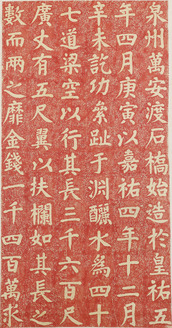 泉州萬安渡石橋始造於皇祐五
年四月庚寅以嘉祐四年十二月
辛未訖功纍趾于淵釃水為四十
七道梁空以行其長三千六百尺
廣丈有五尺翼以扶欄如其長之
數而兩之靡金錢一千四百萬求